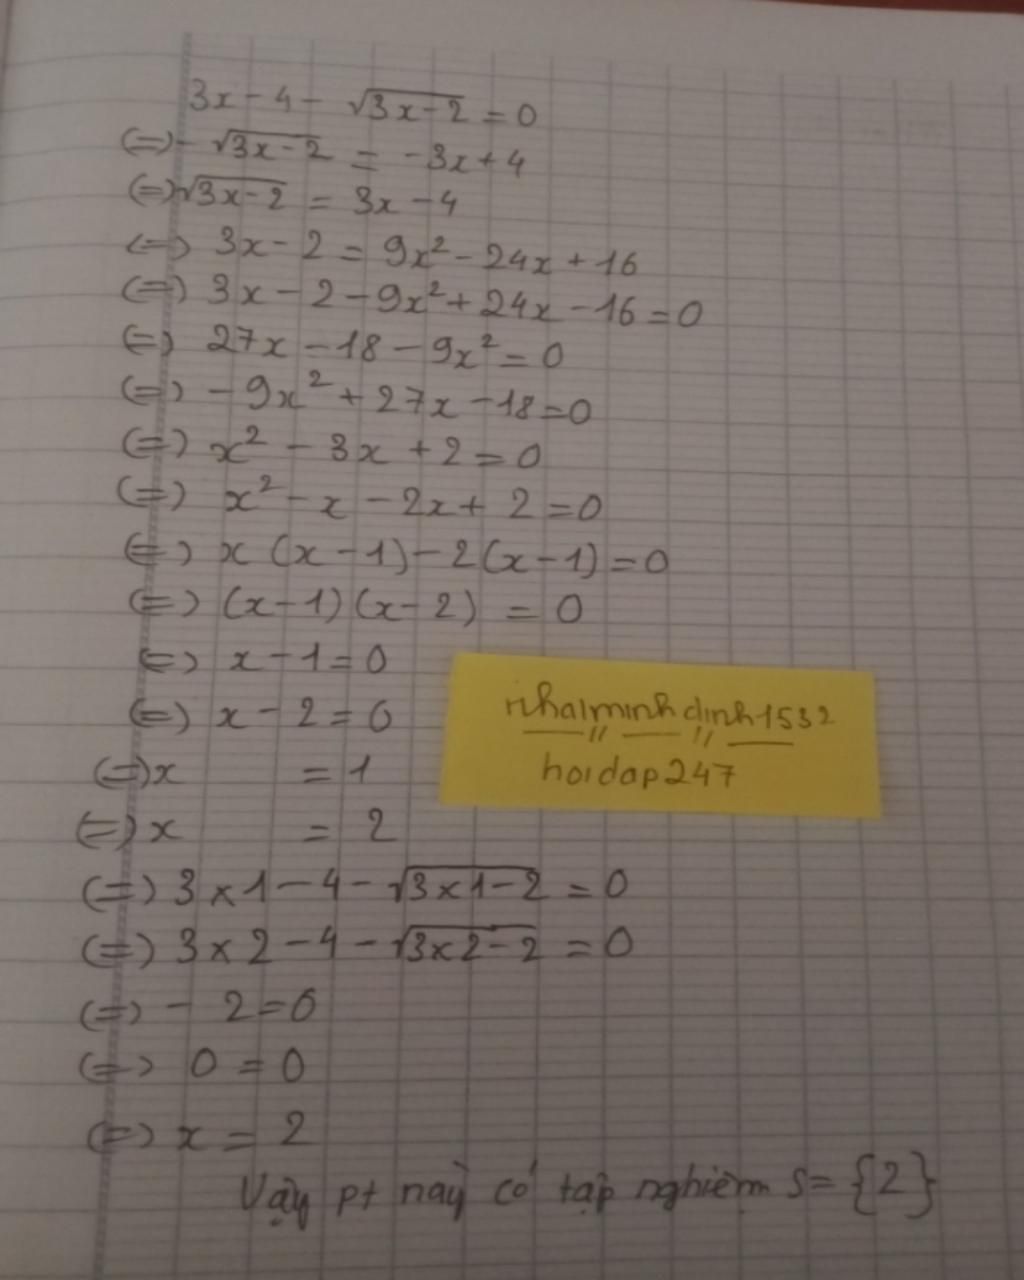 3x - 4 - √3x-2 = 0
(=) - √3x-2 = -3x+4
(=) √3x-2 = 3x-4
(=) 3x - 2 = 9x² - 24x + 16
(=) 3x - 2 - 9x² + 24x - 16 = 0
(=) 27x - 18 - 9x² = 0
(=) - 9x² + 27x - 18 = 0
(=) x² - 3x + 2 = 0
(=) x² - x - 2x + 2 = 0
(=) x (x - 1) - 2(x - 1) = 0
(=) (x-1)(x-2) = 0
(=) x - 1 = 0
(=) x - 2 = 0
(=) x = 1
(=) x = 2
(=) 3 x 1 - 4 - √3x1-2 = 0
(=) 3 x 2 - 4 - √3x2-2 = 0
(=) - 2 = 0
(=) 0 = 0
(=) x = 2
Vậy pt này có tập nghiệm S = {2}
nhalminhdinh1532
hoidap247